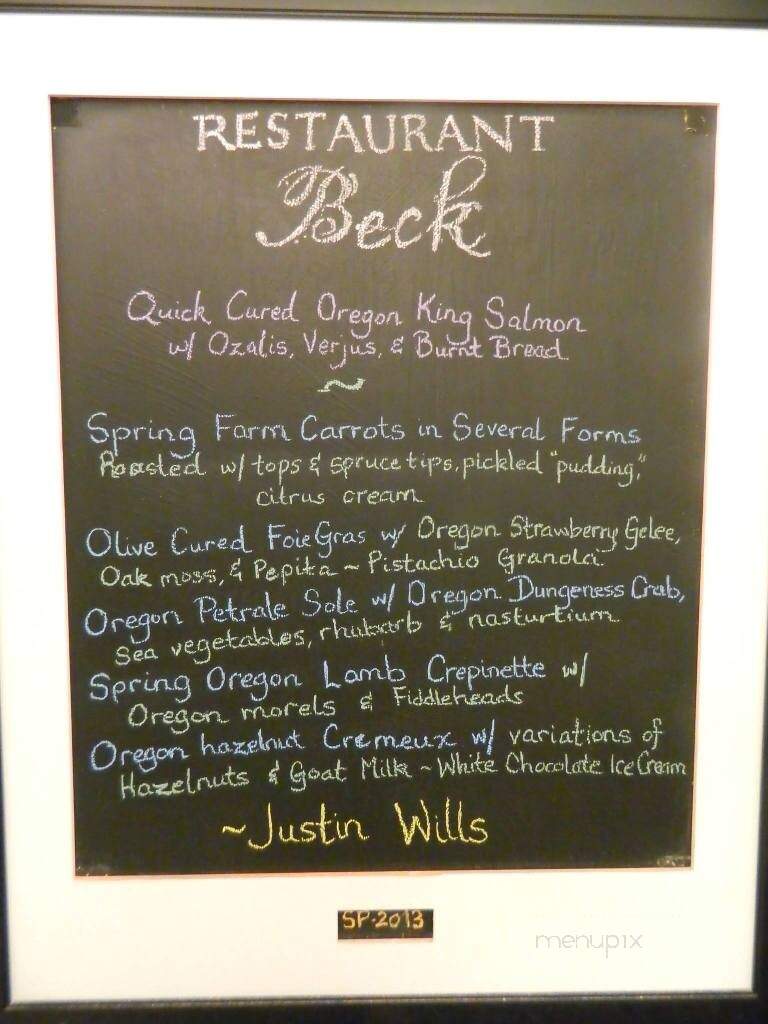 RESTAURANT
Beck
Quick Cured Oregon King Salmon
w/ Ozalis, Verjus, & Burnt Bread
~
Spring Farm Carrots in Several Forms
Roasted w/ tops & spruce tips, pickled "pudding,"
citrus cream
Olive Cured Foie Gras w/ Oregon Strawberry Gelee,
Oak moss, & Pepita ~ Pistachio Granola
Oregon Petrale Sole w/ Oregon Dungeness Crab,
Sea vegetables, rhubarb & nasturtium
Spring Oregon Lamb Crepinette w/
Oregon morels & Fiddleheads
Oregon hazelnut Cremeux w/ variations of
Hazelnuts & Goat Milk ~ White Chocolate Ice Cream
~Justin Wills
SP·2013
menupix